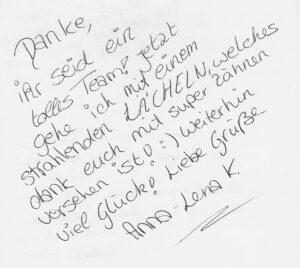 Danke,
ihr seid ein
tolles Team! Jetzt
gehe ich mit einem
strahlenden LÄCHELN, welches
dank euch mit super Zähnen
versehen ist! :) Weiterhin
viel Glück! Liebe Grüße
Anna-Lena K.